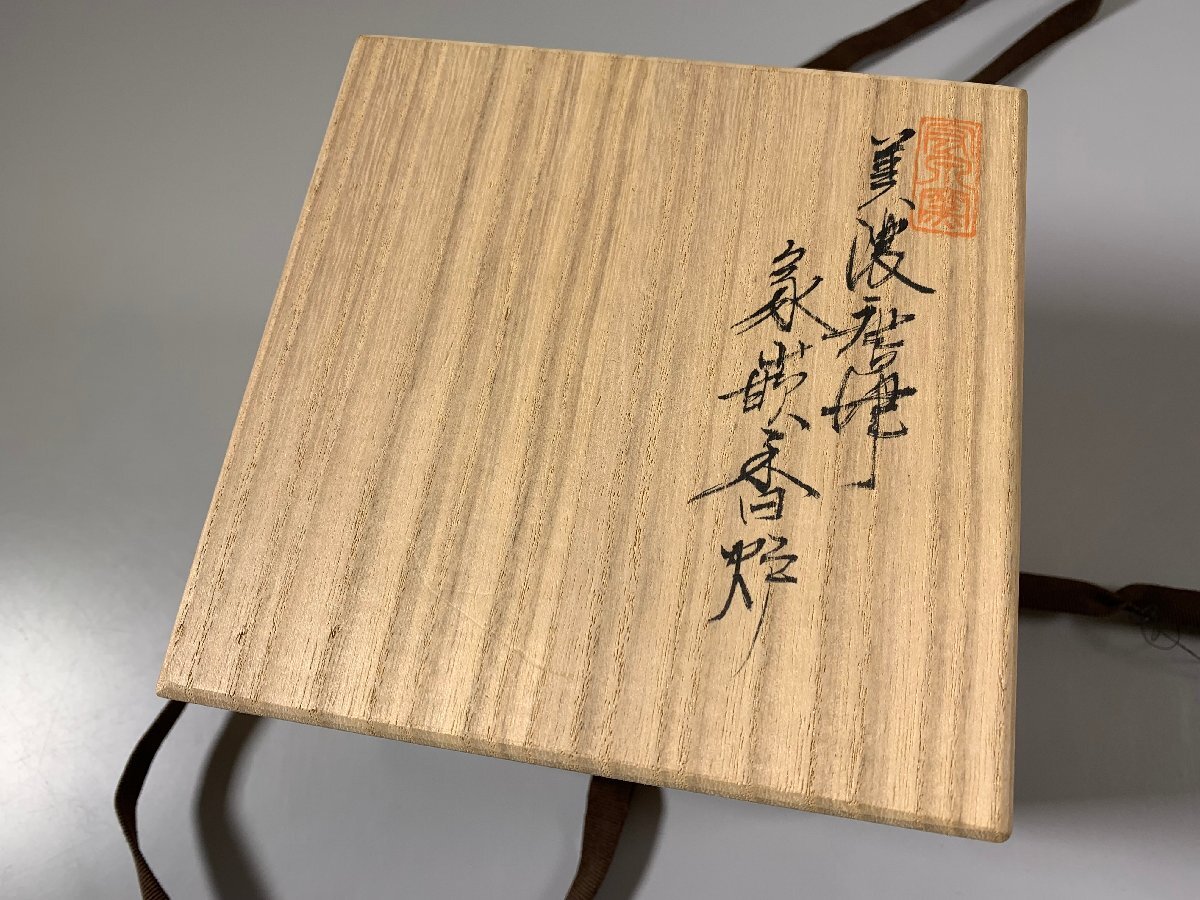 美濃唐津
象嵌香炉